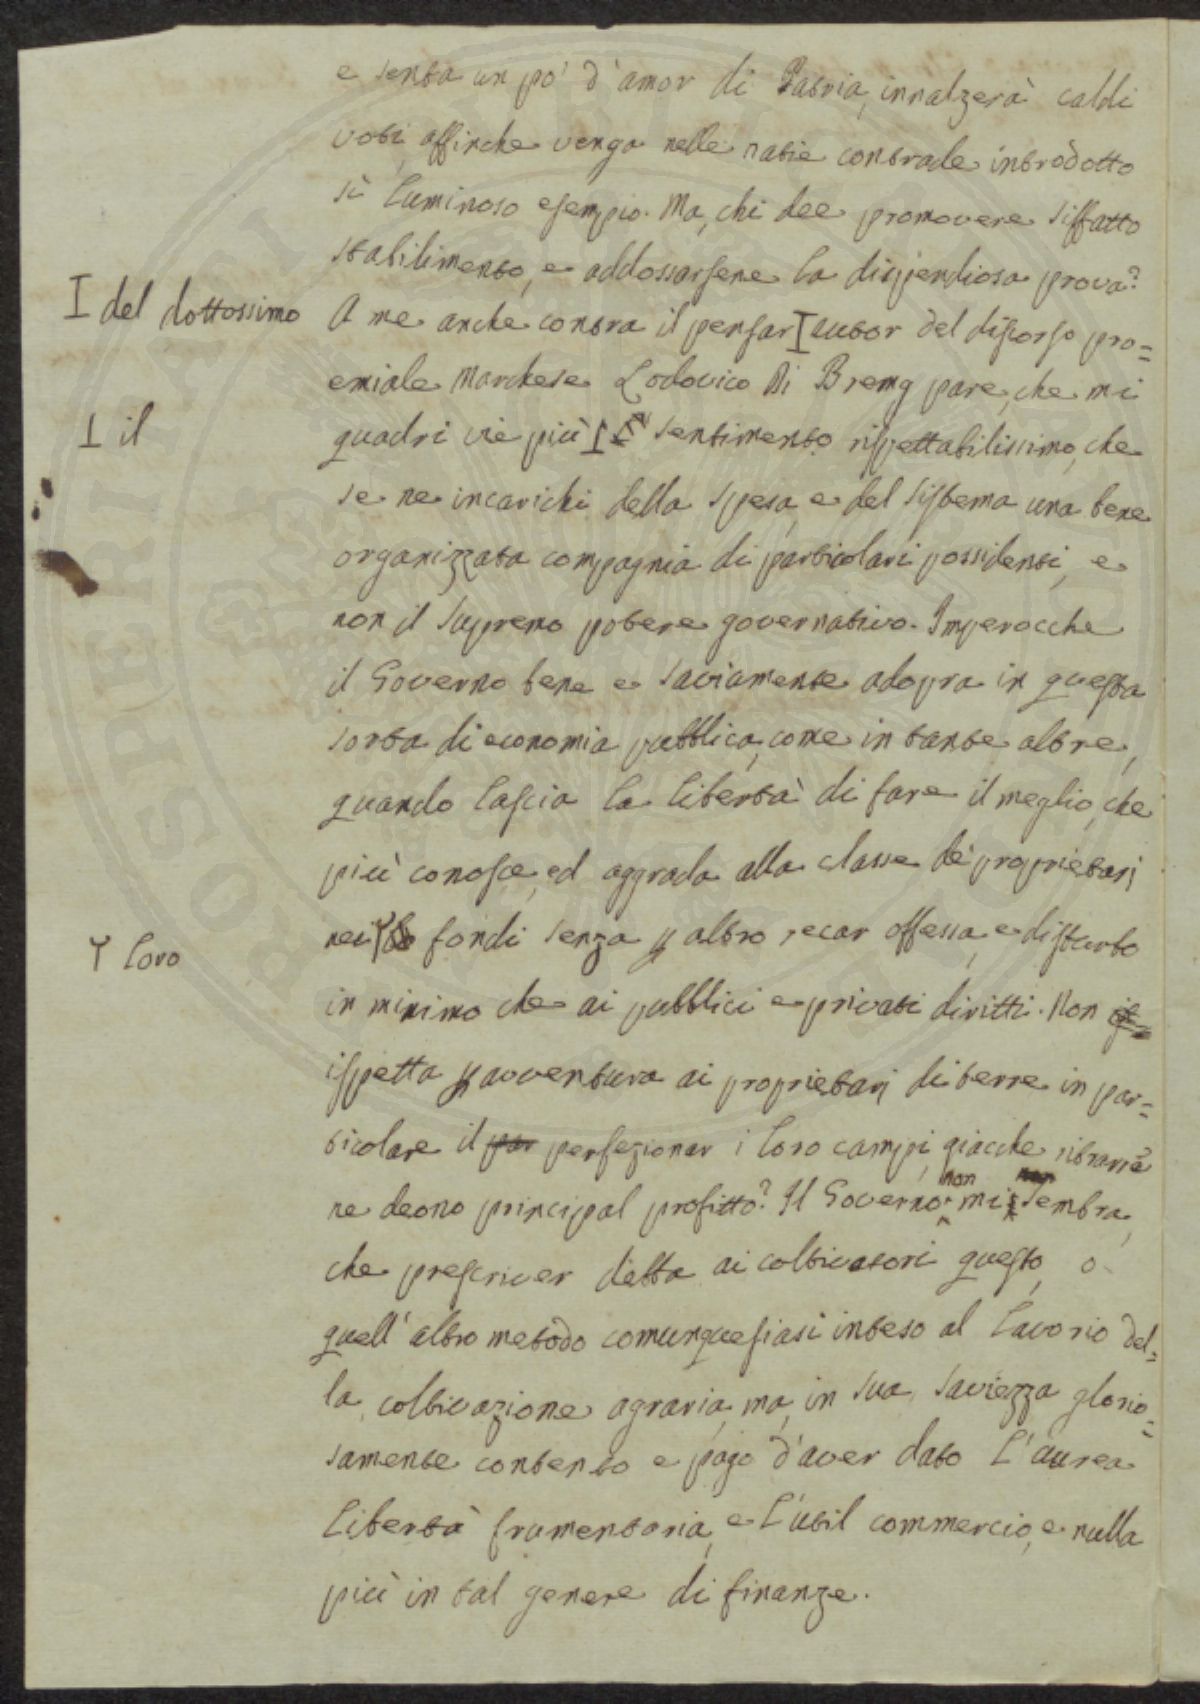 e senta un po' d'amor di Patria, innalzerà caldi
voti, affinche venga nelle natie contrade introdotto
sì luminoso esempio. Ma, chi dee promovere siffatto
stabilimento, e addossarsene la dispendiosa prova?
I del dottossimo
A me anche contra il pensar I autor del discorso pro=
emiale Marchese Lodovico Di Breme pare, che mi
I il
quadri vie più I sentimento rispettabilissimo, che
se ne incarichi della spesa, e del sistema una bene
organizzata compagnia di particolari possidenti, e
non il supremo potere governativo. Imperocche
il Governo bene e saviamente adopra in questa
sorta di economia pubblica, come in tante altre,
quando lascia la libertà di fare il meglio, che
più conosce, ed aggrada alla classe de' proprietarj
Y loro
nei Y fondi senza p altro recar offessa, e disturbo
in minimo che ai pubblici e privati diritti. Non
ispetta p avventura ai proprietarj di terre in par=
ticolare il par perfezionar i loro campi, giacche ritrarre
non non
ne deono principal profitto? Il Governo mi sembra,
che prescriver debba ai coltivatori questo, o
quell'altro metodo comunquesiasi inteso al lavorio del=
la coltivazione agraria, ma, in sua saviezza glorio=
samente contento e pago d'aver dato l'aurea
libertà frumentaria, e l'util commercio, e nulla
più in tal genere di finanze.